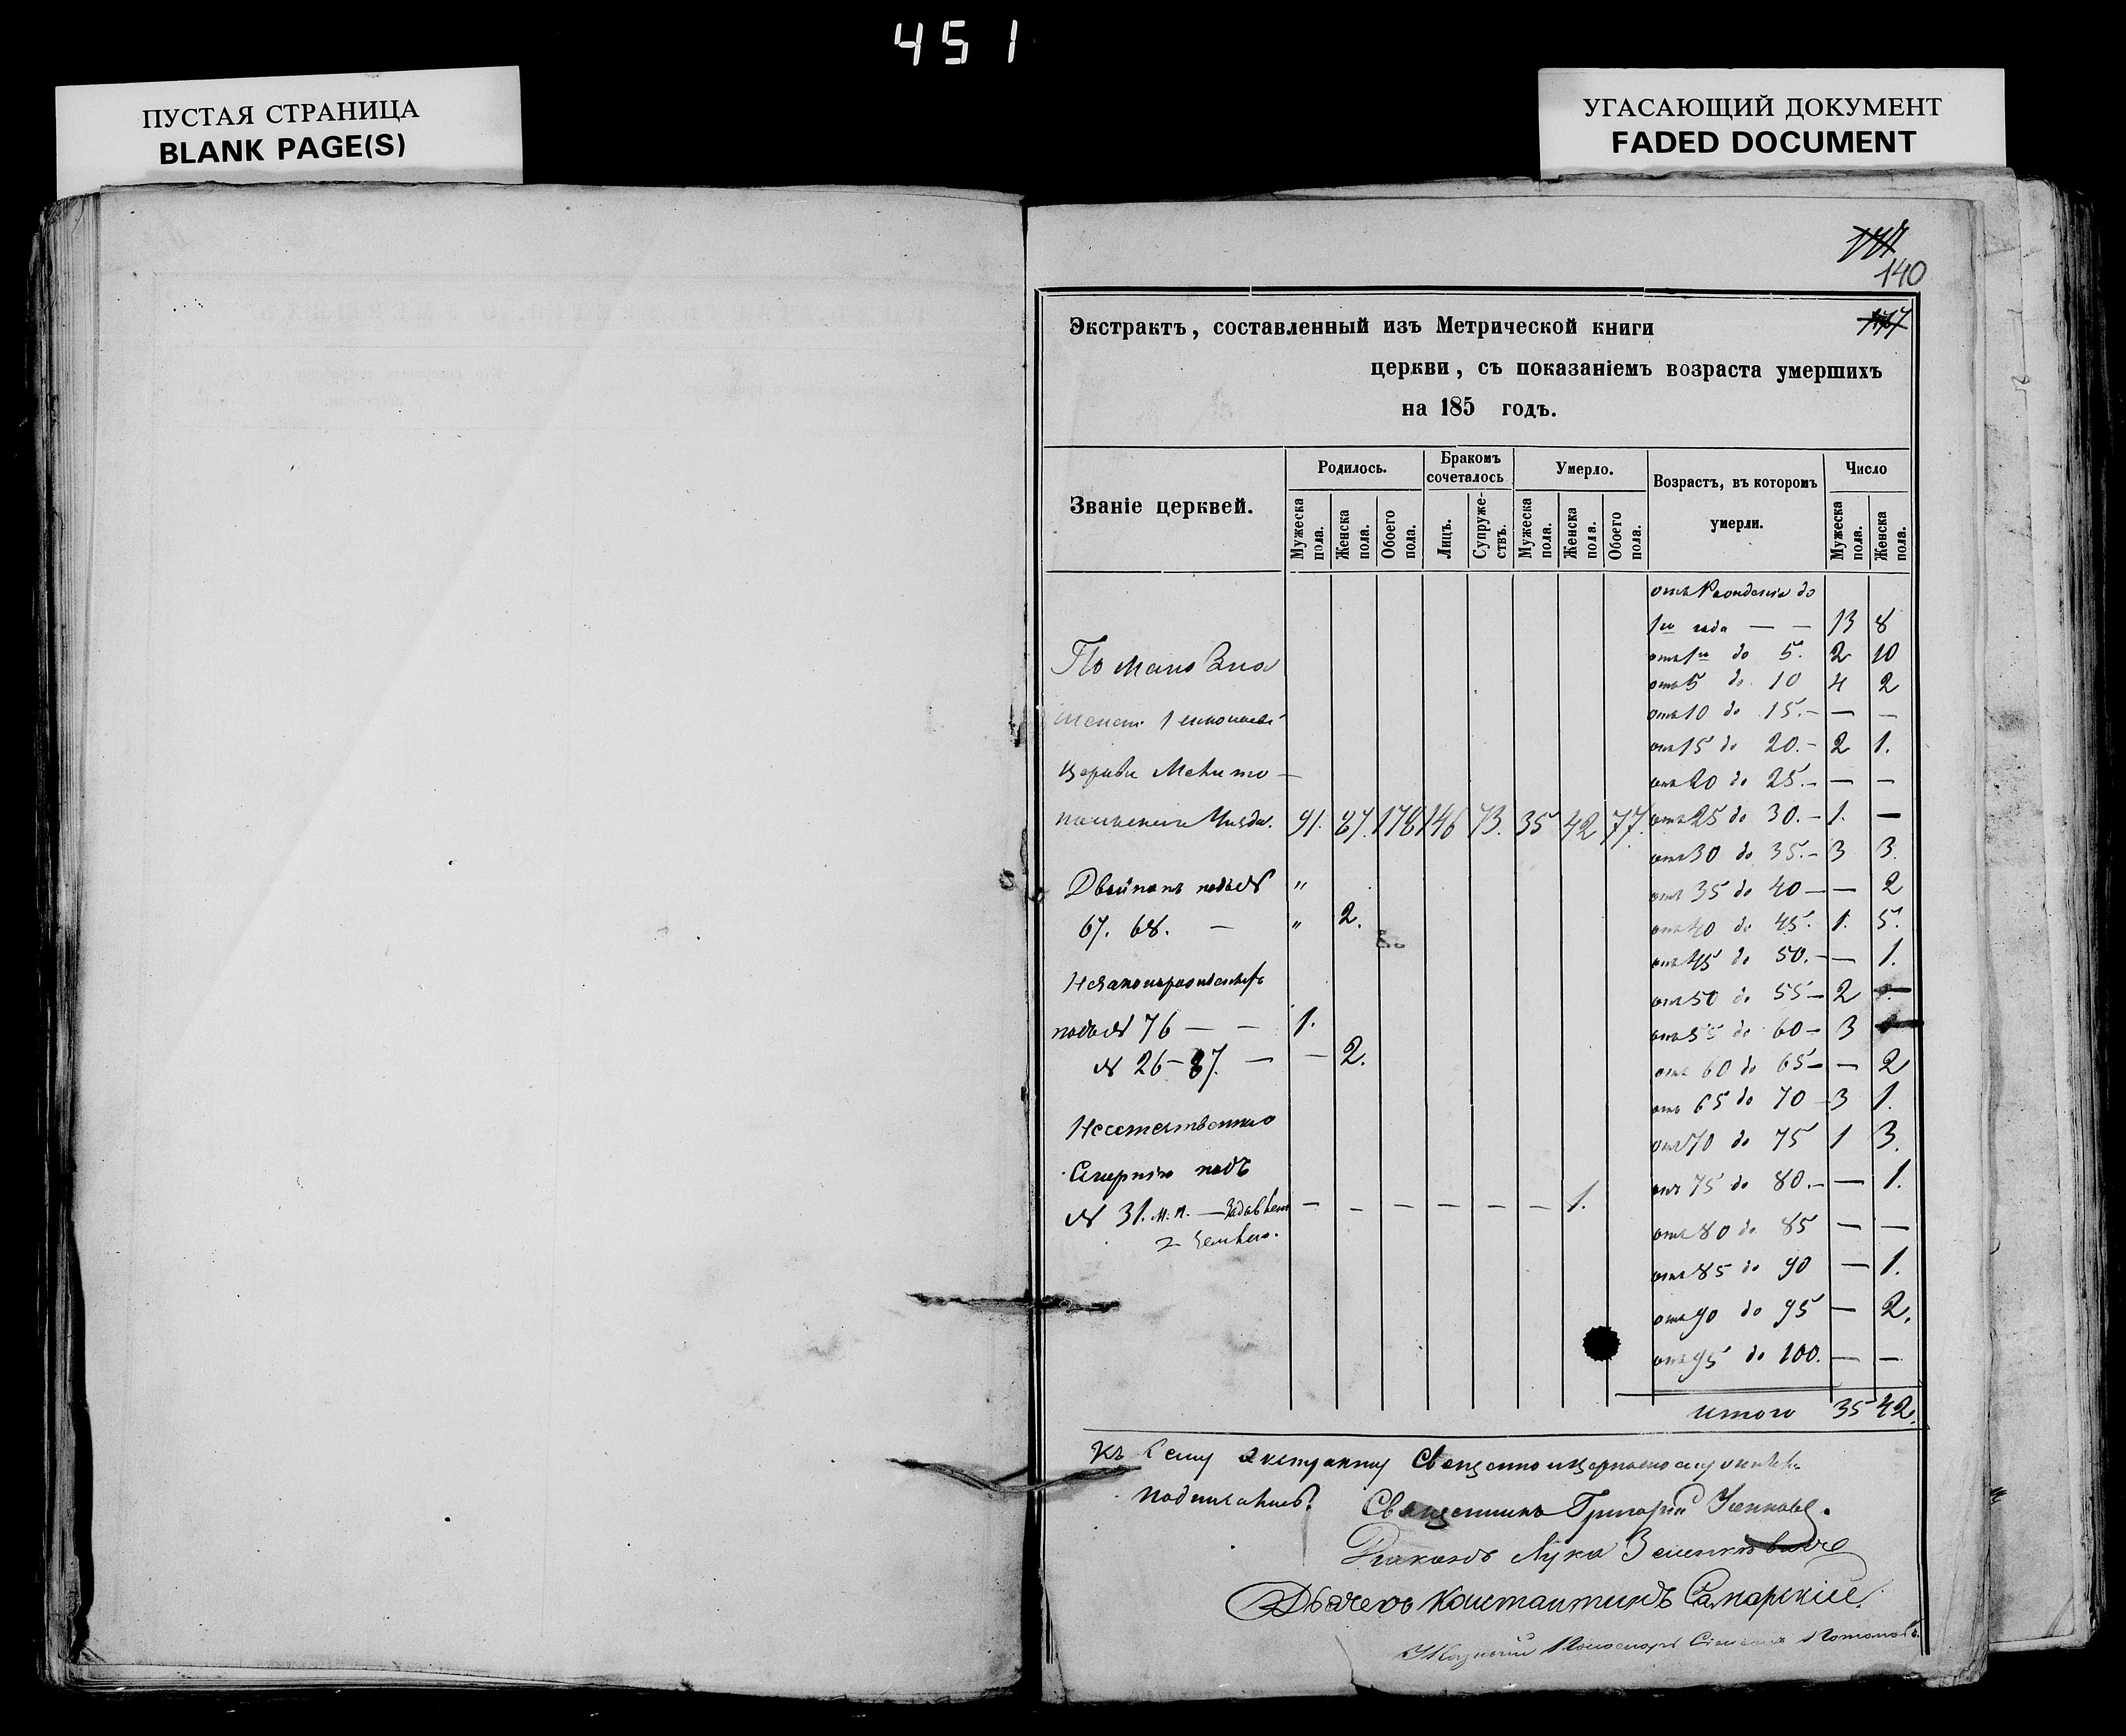 451
ПУСТАЯ СТРАНИЦА
BLANK PAGE(S)
УГАСАЮЩИЙ ДОКУМЕНТ
FADED DOCUMENT
140
Экстрактъ, составленный изъ Метрической книги
церкви, съ показаніемъ возраста умершихъ
на 185 годъ.
Званіе церквей.
Родилось.
Бракомъ сочеталось
Умерло.
Возрастъ, въ которомъ умерли.
Число
Мужеска пола.
Женска пола.
Обоего пола.
Лицъ.
Супружествъ.
Мужеска пола.
Женска пола.
Обоего пола.
Мужеска пола.
Женска пола.
отъ Рожденія до
1го года — — 13 8
отъ 1го до 5. 2 10
отъ 5 до 10 4 2
отъ 10 до 15. — — —
отъ 15 до 20. — 2 1.
Церкви Мелито—
отъ 20 до 25. — — —
польскаго Уѣзда. 91. 87. 178 146 73. 35 42 77.
отъ 25 до 30. — 1. —
отъ 30 до 35. — 3 3.
Двойнят подъ №
"
отъ 35 до 40 — — 2
67. 68. — " 2.
отъ 40 до 45. 1. 5.
отъ 45 до 50. — — 1.
Незаконнорожденныхъ
отъ 50 до 55 — 2 —
подъ № 76 — — 1.
отъ 55 до 60 — 3
№ 26 — 87. — — 2.
отъ 60 до 65 — — 2
отъ 65 до 70 — 3 1.
Неестественно
отъ 70 до 75 1 3.
Смертію подъ
отъ 75 до 80. — — 1.
№ 31. м. п. — — — — — — — 1.
землею.
отъ 80 до 85 — —
отъ 85 до 90 — 1.
отъ 90 до 95 — 2.
отъ 95 до 100. — —
итого 35 42.
Къ сему экстракту Священноцерковнослужители
подписались:
Священникъ Григорій
Діаконъ Лука
Дьячекъ Константинъ Самарскій.
Пономарь